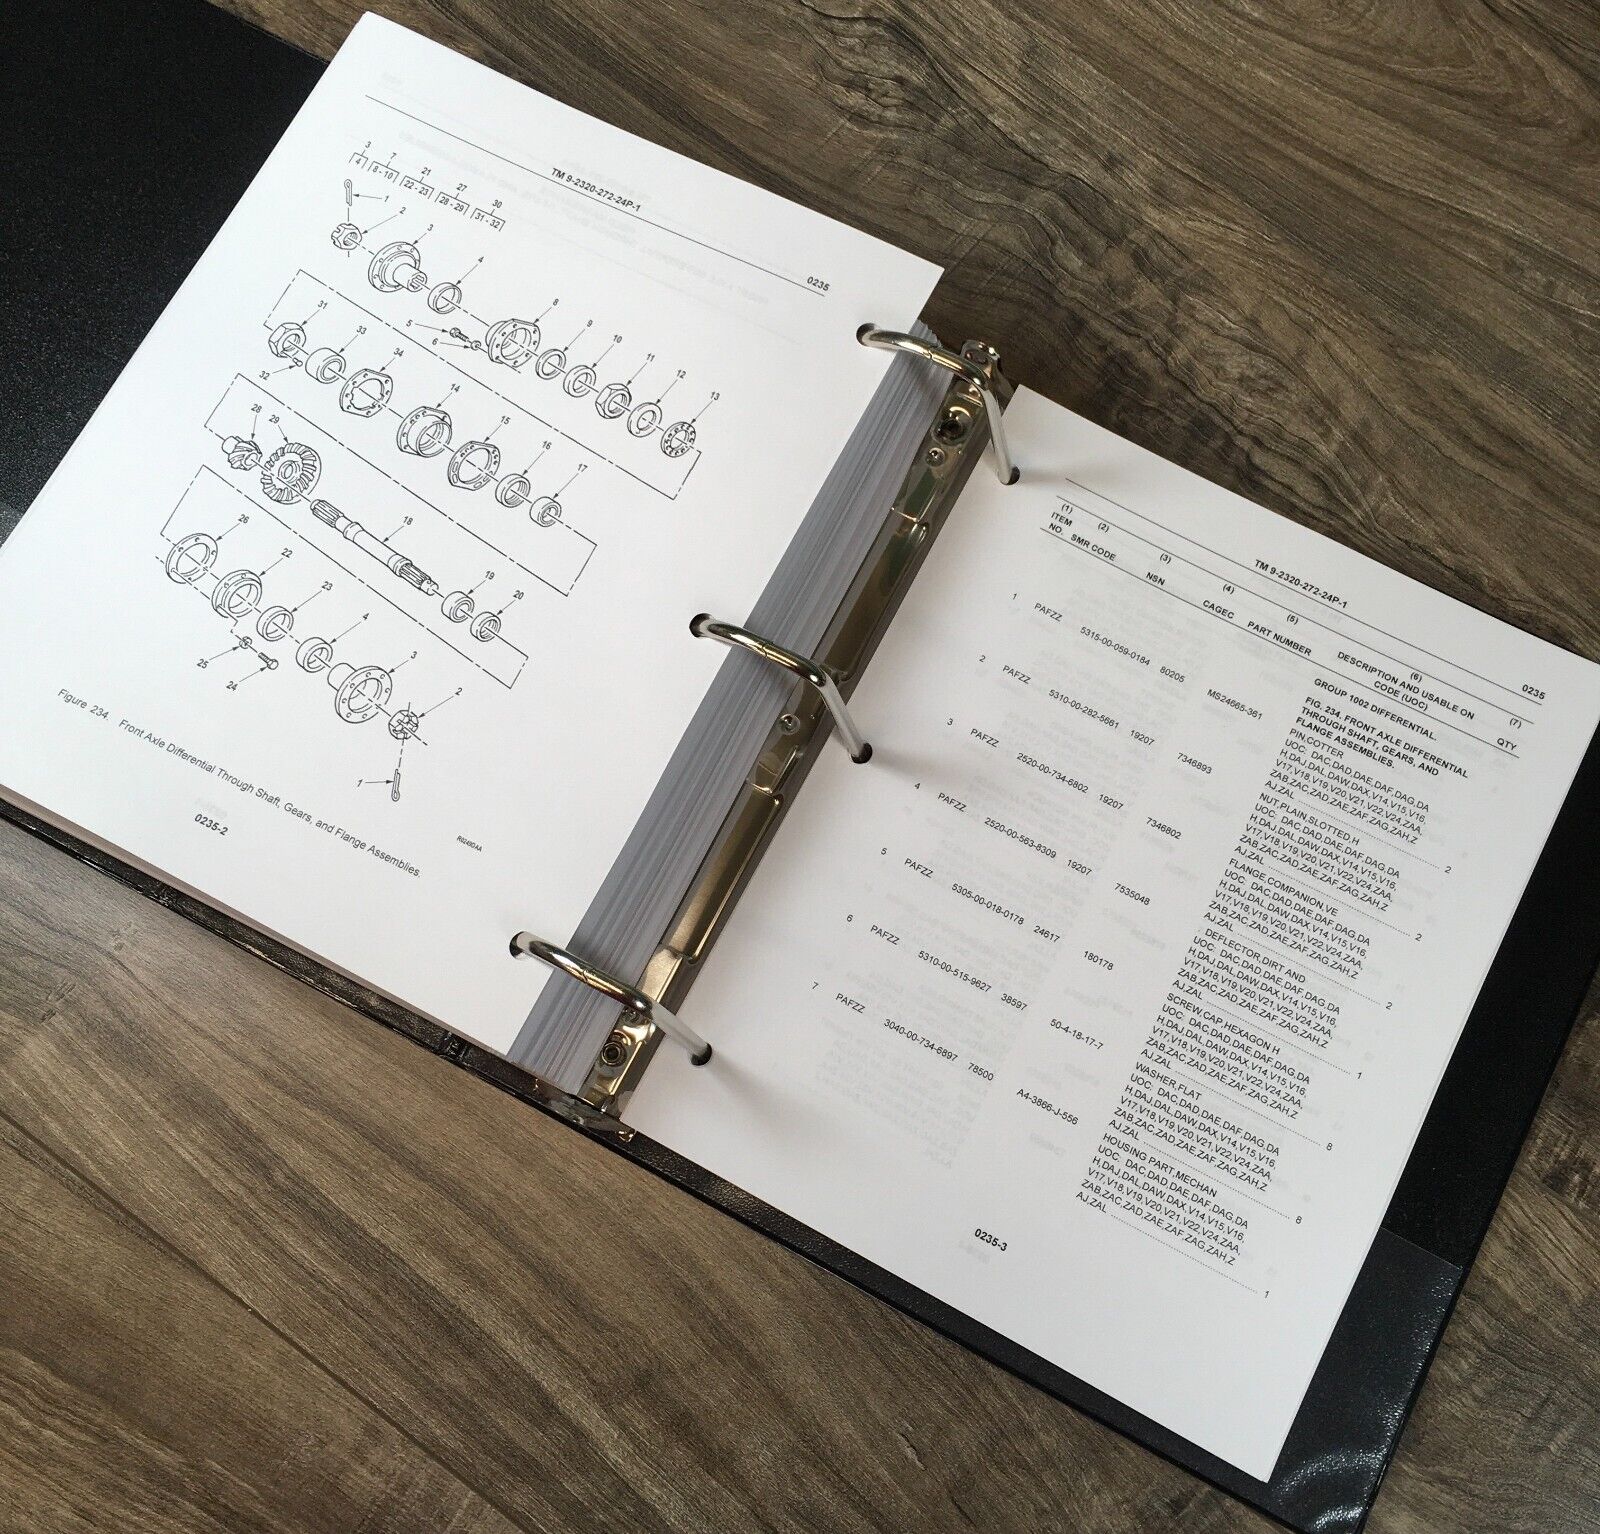 TM 9-2320-272-24P-1
0235
3 7 21 27 30
4 8 - 10 22 - 23 28 - 29 31 - 32
1
2
3
4
5
6
8
9
10
11
12
13
31
32
33
34
14
15
16
17
28
29
18
19
20
26
22
23
25
24
4
3
2
1
Figure 234. Front Axle Differential Through Shaft, Gears, and Flange Assemblies.
0235-2
TM 9-2320-272-24P-1
0235
(1) (2) (3) (4) (5) (6) (7)
ITEM
NO. SMR CODE NSN CAGEC PART NUMBER DESCRIPTION AND USABLE ON
CODE (UOC) QTY
GROUP 1002 DIFFERENTIAL.
FIG. 234. FRONT AXLE DIFFERENTIAL
THROUGH SHAFT, GEARS, AND
FLANGE ASSEMBLIES.
1 PAFZZ 5315-00-059-0184 80205 MS24665-361 PIN,COTTER
UOC: DAC,DAD,DAE,DAF,DAG,DA
H,DAJ,DAL,DAW,DAX,V14,V15,V16,
V17,V18,V19,V20,V21,V22,V24,ZAA,
ZAB,ZAC,ZAD,ZAE,ZAF,ZAG,ZAH,Z
AJ,ZAL 2
2 PAFZZ 5310-00-282-5661 19207 7346893 NUT,PLAIN,SLOTTED,H
UOC: DAC,DAD,DAE,DAF,DAG,DA
H,DAJ,DAL,DAW,DAX,V14,V15,V16,
V17,V18,V19,V20,V21,V22,V24,ZAA,
ZAB,ZAC,ZAD,ZAE,ZAF,ZAG,ZAH,Z
AJ,ZAL 2
3 PAFZZ 2520-00-734-6802 19207 7346802 FLANGE,COMPANION,VE
UOC: DAC,DAD,DAE,DAF,DAG,DA
H,DAJ,DAL,DAW,DAX,V14,V15,V16,
V17,V18,V19,V20,V21,V22,V24,ZAA,
ZAB,ZAC,ZAD,ZAE,ZAF,ZAG,ZAH,Z
AJ,ZAL 2
4 PAFZZ 2520-00-563-8309 19207 7535048 . DEFLECTOR,DIRT AND
UOC: DAC,DAD,DAE,DAF,DAG,DA
H,DAJ,DAL,DAW,DAX,V14,V15,V16,
V17,V18,V19,V20,V21,V22,V24,ZAA,
ZAB,ZAC,ZAD,ZAE,ZAF,ZAG,ZAH,Z
AJ,ZAL 1
5 PAFZZ 5305-00-018-0178 24617 180178 SCREW,CAP,HEXAGON H
UOC: DAC,DAD,DAE,DAF,DAG,DA
H,DAJ,DAL,DAW,DAX,V14,V15,V16,
V17,V18,V19,V20,V21,V22,V24,ZAA,
ZAB,ZAC,ZAD,ZAE,ZAF,ZAG,ZAH,Z
AJ,ZAL 8
6 PAFZZ 5310-00-515-9627 38597 50-4-18-17-7 WASHER,FLAT
UOC: DAC,DAD,DAE,DAF,DAG,DA
H,DAJ,DAL,DAW,DAX,V14,V15,V16,
V17,V18,V19,V20,V21,V22,V24,ZAA,
ZAB,ZAC,ZAD,ZAE,ZAF,ZAG,ZAH,Z
AJ,ZAL 8
7 PAFZZ 3040-00-734-6897 78500 A4-3866-J-556 HOUSING PART,MECHAN
UOC: DAC,DAD,DAE,DAF,DAG,DA
H,DAJ,DAL,DAW,DAX,V14,V15,V16,
V17,V18,V19,V20,V21,V22,V24,ZAA,
ZAB,ZAC,ZAD,ZAE,ZAF,ZAG,ZAH,Z
AJ,ZAL 1
0235-3